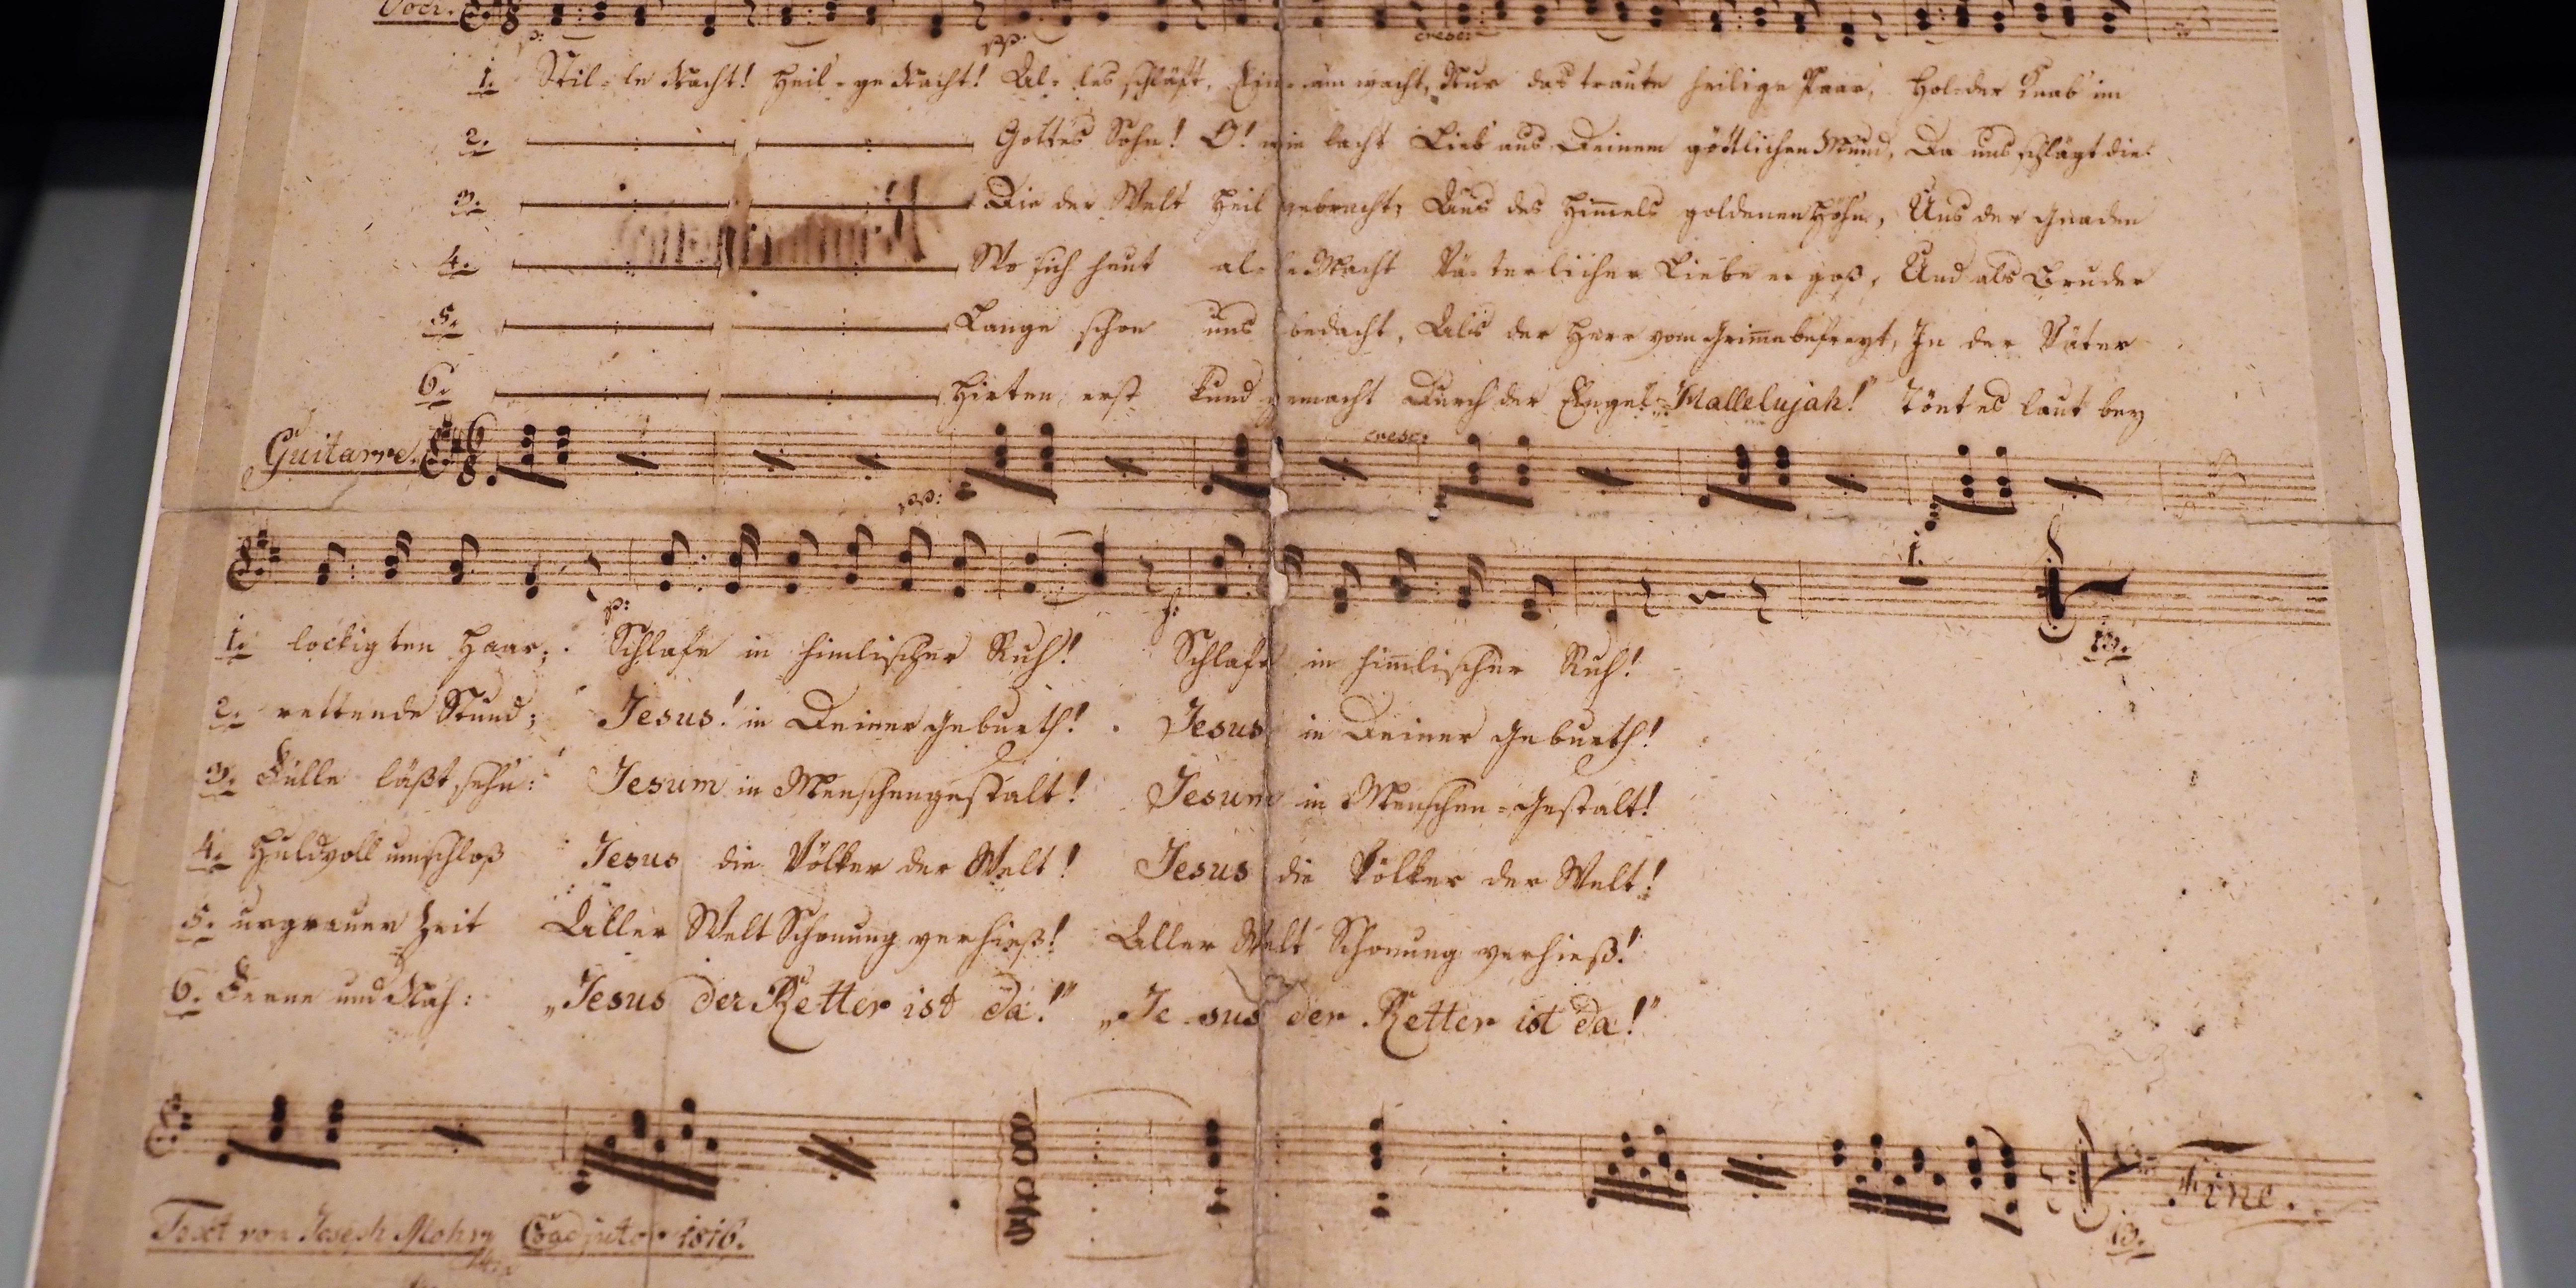 Voci.
p: pp: cresc:
1. Stil-le Nacht! Heil-ge Nacht! Al-les schläft, Einsam wacht, Nur das traute heilige Paar, Holder Knab' im
2. Gottes Sohn! O! wie lacht Lieb' aus Deinem göttlichen Mund, Da uns schlägt die
3. Die der Welt Heil gebracht, Aus des Him̅els goldenen Höhn, Uns der Gnaden
4. Wo sich heut al-le Macht Vä-terlicher Liebe ergoß, Und als Bruder
5. Lange schon uns bedacht, Als der Herr vom Grim̅e befreyt, In der Väter
6. Hirten erst kund gemacht Durch der Engel "Hallelujah!" Tönt es laut bey
Guitarre. cresc:
pp:
1.
p: f:
1. lockigten Haar; Schlafe in him̅lischer Ruh! Schlafe in him̅lischer Ruh!
2. rettende Stund; Jesus! in Deiner Geburth! Jesus in Deiner Geburth!
3. Fülle läßt sehn: Jesum in Menschengestalt! Jesum in Menschen=Gestalt!
4. Huldvoll umschloß Jesus die Völker der Welt! Jesus die Völker der Welt!
5. urgrauer Zeit Aller Welt Schonung verhieß! Aller Welt Schonung verhieß!
6. Ferne und Nah: „Jesus der Retter ist da!" „Je-sus der Retter ist da!"
Fine.
Text von Joseph Mohr Coadjutor 1816.